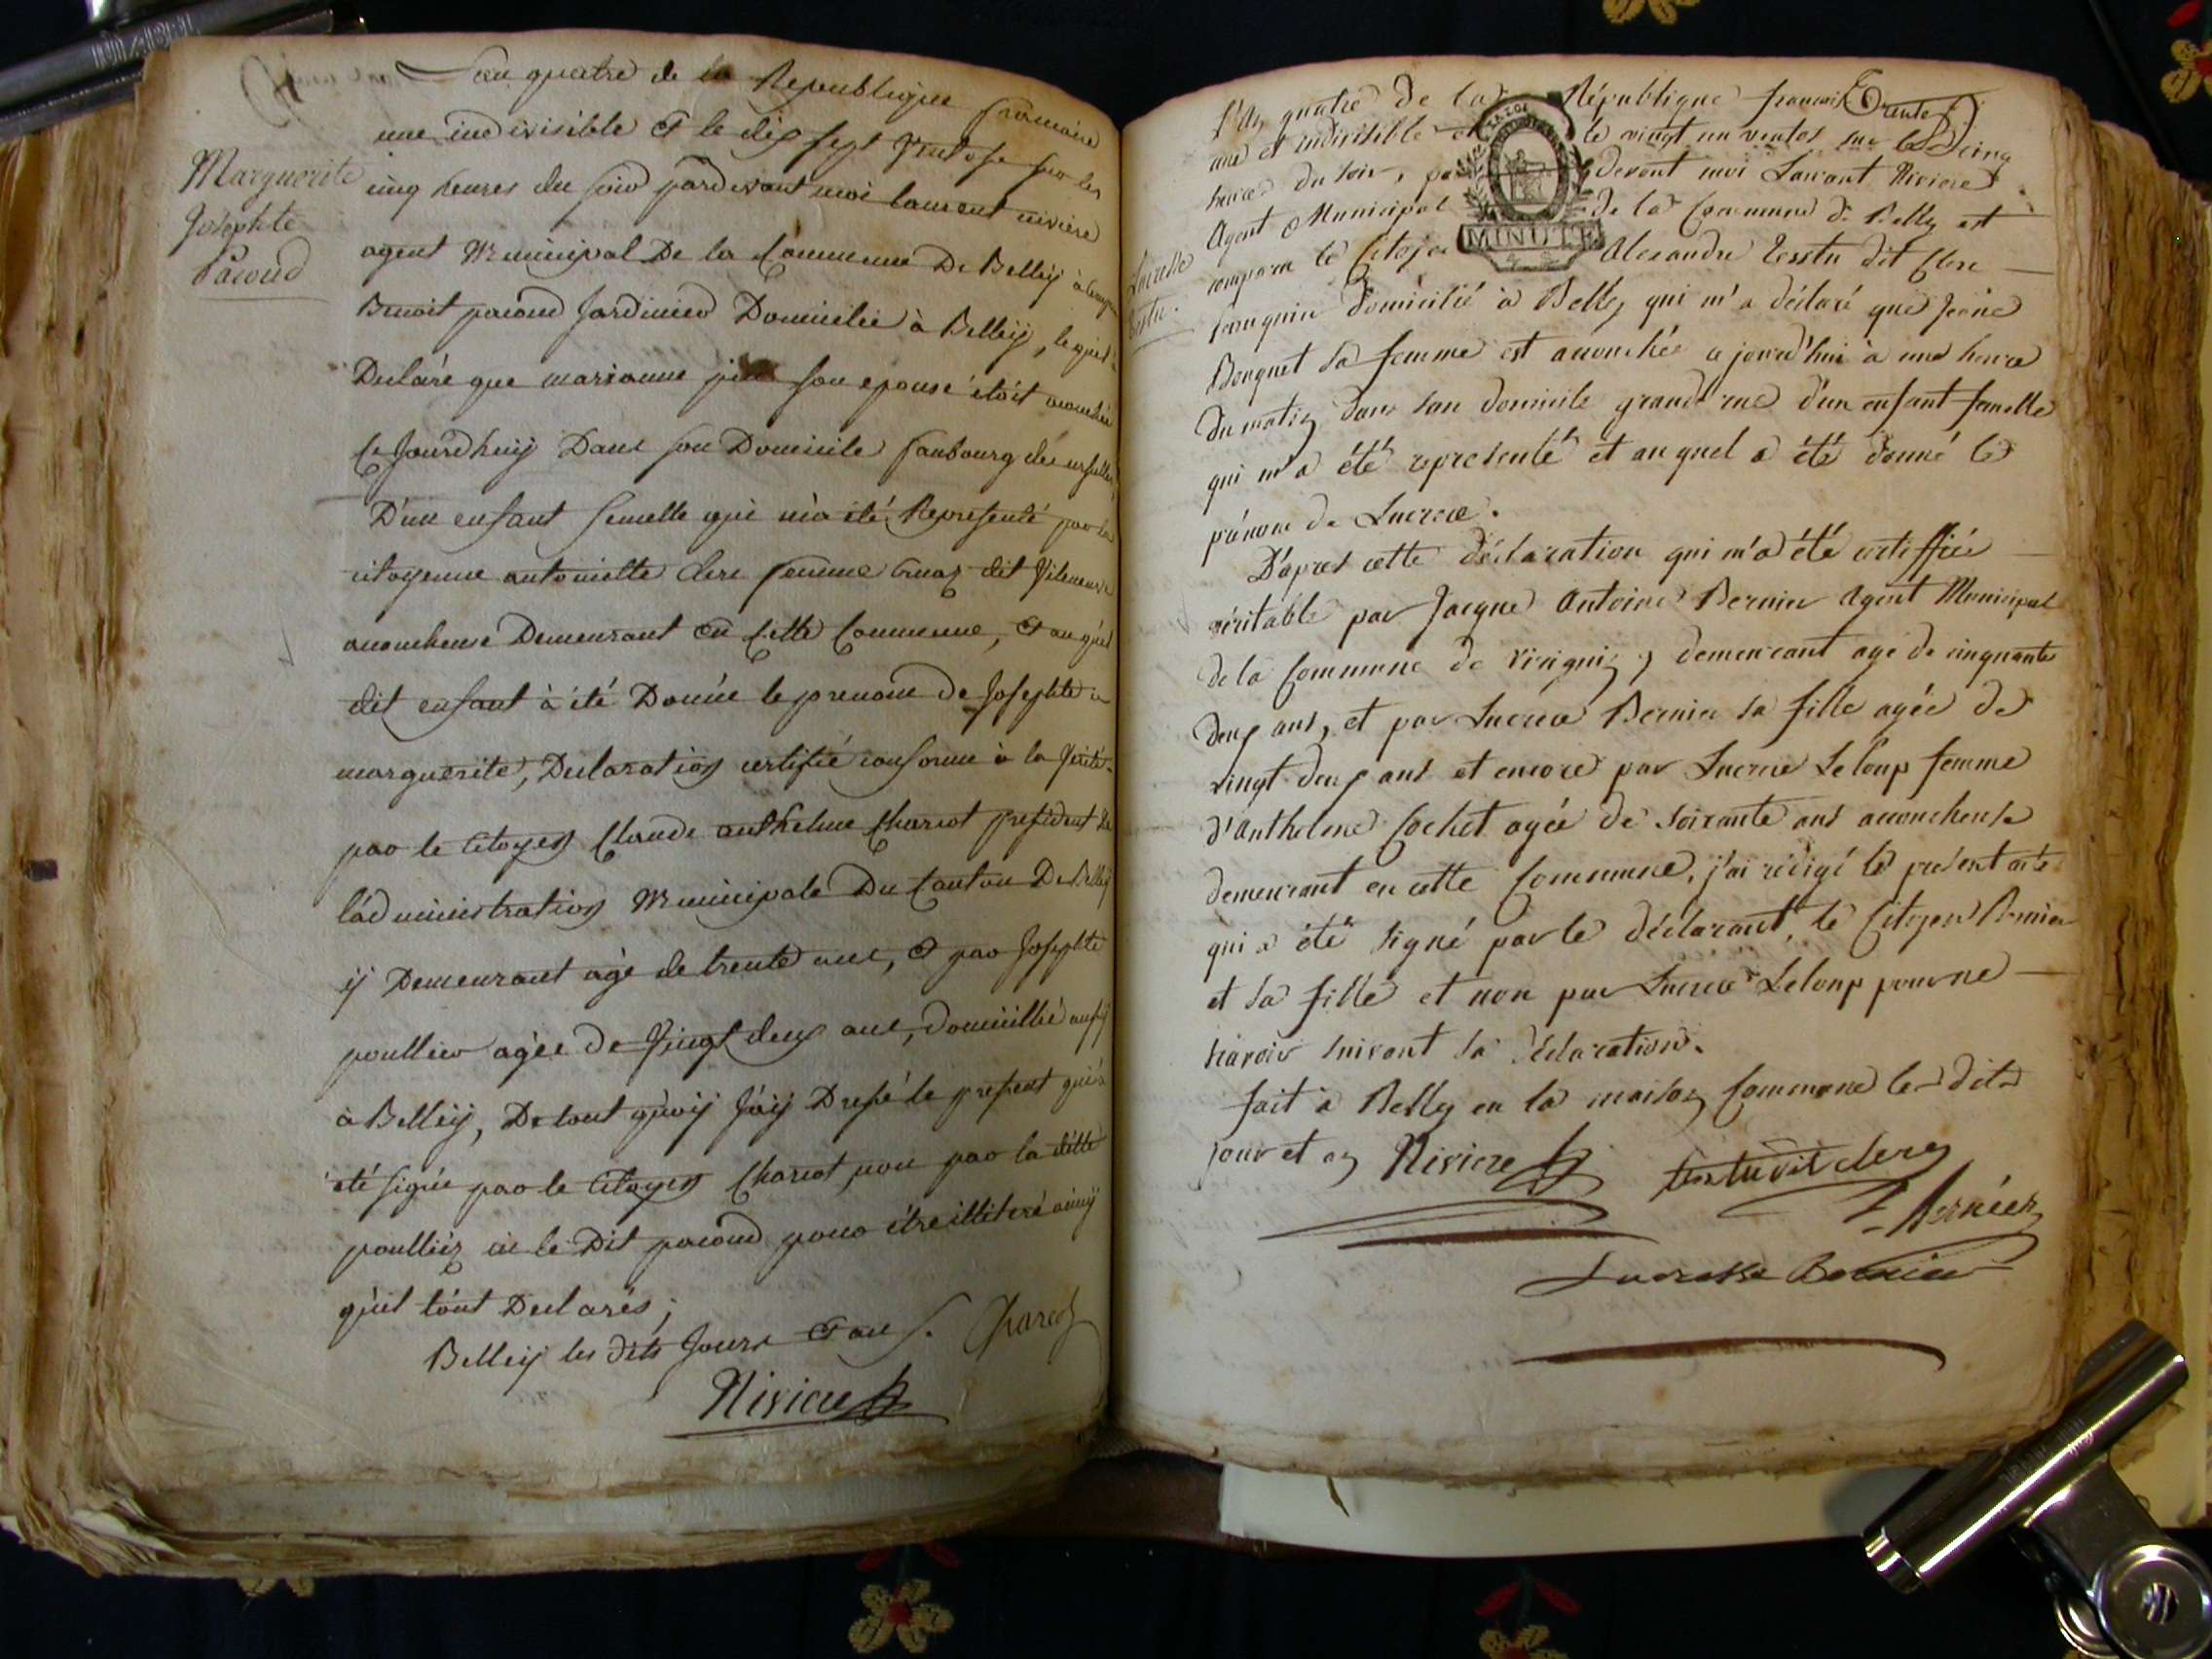 L'an quatre de la Republique francaise
une indivisible et le dix sept Ventose sur les
cinq heures du soir pardevant moi laurent riviere
agent Municipal De la Commune De Belleÿ à comparu
Benoit pacoud Jardinier Domicilié à Belleÿ, lequel
Declaré que marianne son epouse étoit accouchée
Ce Jourdhuÿ Dans son Domicile faubourg des ursulles
D'un enfant femelle qui m'a été Representé par la
citoyenne antoinette clere femme cruaz dit Vileneuve
accoucheuse Demeurant en Cette Commune, et au quel
dit enfant à été Donnée le prenom de Josephte
marguerite, Declaration certifié conforme à la Verité
par le Citoyen Claude anthelme Charcot president de
l'administration Municipale Du Canton De Belleÿ
ÿ Demeurant agé de trente ans, et par Josephte
poullier agée De Vingt deux ans, domicillié aussÿ
à Belleÿ, De tout quoÿ J'aÿ Dressé le present qui a
été signée par le Citoyen Charcot, non par la ditte
poullier ni le Dit pacoud pour être illiteré ainsÿ
qu'il l'ont Declarés;
Belleÿ les dits Jours et an /. Charcot
Riviere
Marguerite
Josephte
Pacoud
Trente
L'an quatre de la République francaise
une et indivisible et le vingt un ventos sur les cinq
heures du soir, par devant moi Laurant Riviere
Agent Municipal de la Commune de Belley est
comparu le Citoyen Alexandre Testu dit Clerc
domicilié à Belley qui m'a déclaré que
Bouquet sa femme est accouchée ce jourd'hui à une heure
du matin dans son domicile grand rue d'un enfant femelle
qui m'a été representé et au quel a été donné le
prénom de Lucrece.
D'apres cette déclaration qui m'a été certiffiée
véritable par Jacque Antoine Bernier Agent Municipal
de la Commune de virignin, y demeurant agé de cinquante
deux ans, et par Lucrece Bernier sa fille agée de
vingt deux ans et encore par Lucrece Leloup femme
d'Anthelme Cochet agée de soixante ans accoucheuse
demeurant en cette Commune, j'ai rédigé le présent acte
qui a été signé par le déclarant, le Citoyen Bernier
et sa fille et non par Lucrece Leloup pour ne
savoir suivant sa déclaration.
fait à Belley en la maison Commune les dits
jour et an Riviere testu dit clerc
Bernier
Lucresse Bernier
Lucrece
Testu.
LA LOI
MINUTE